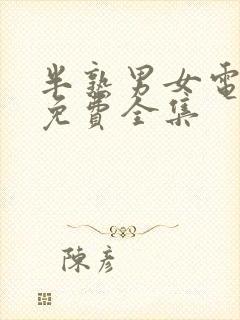 半熟男女電
免費全集
陳彥